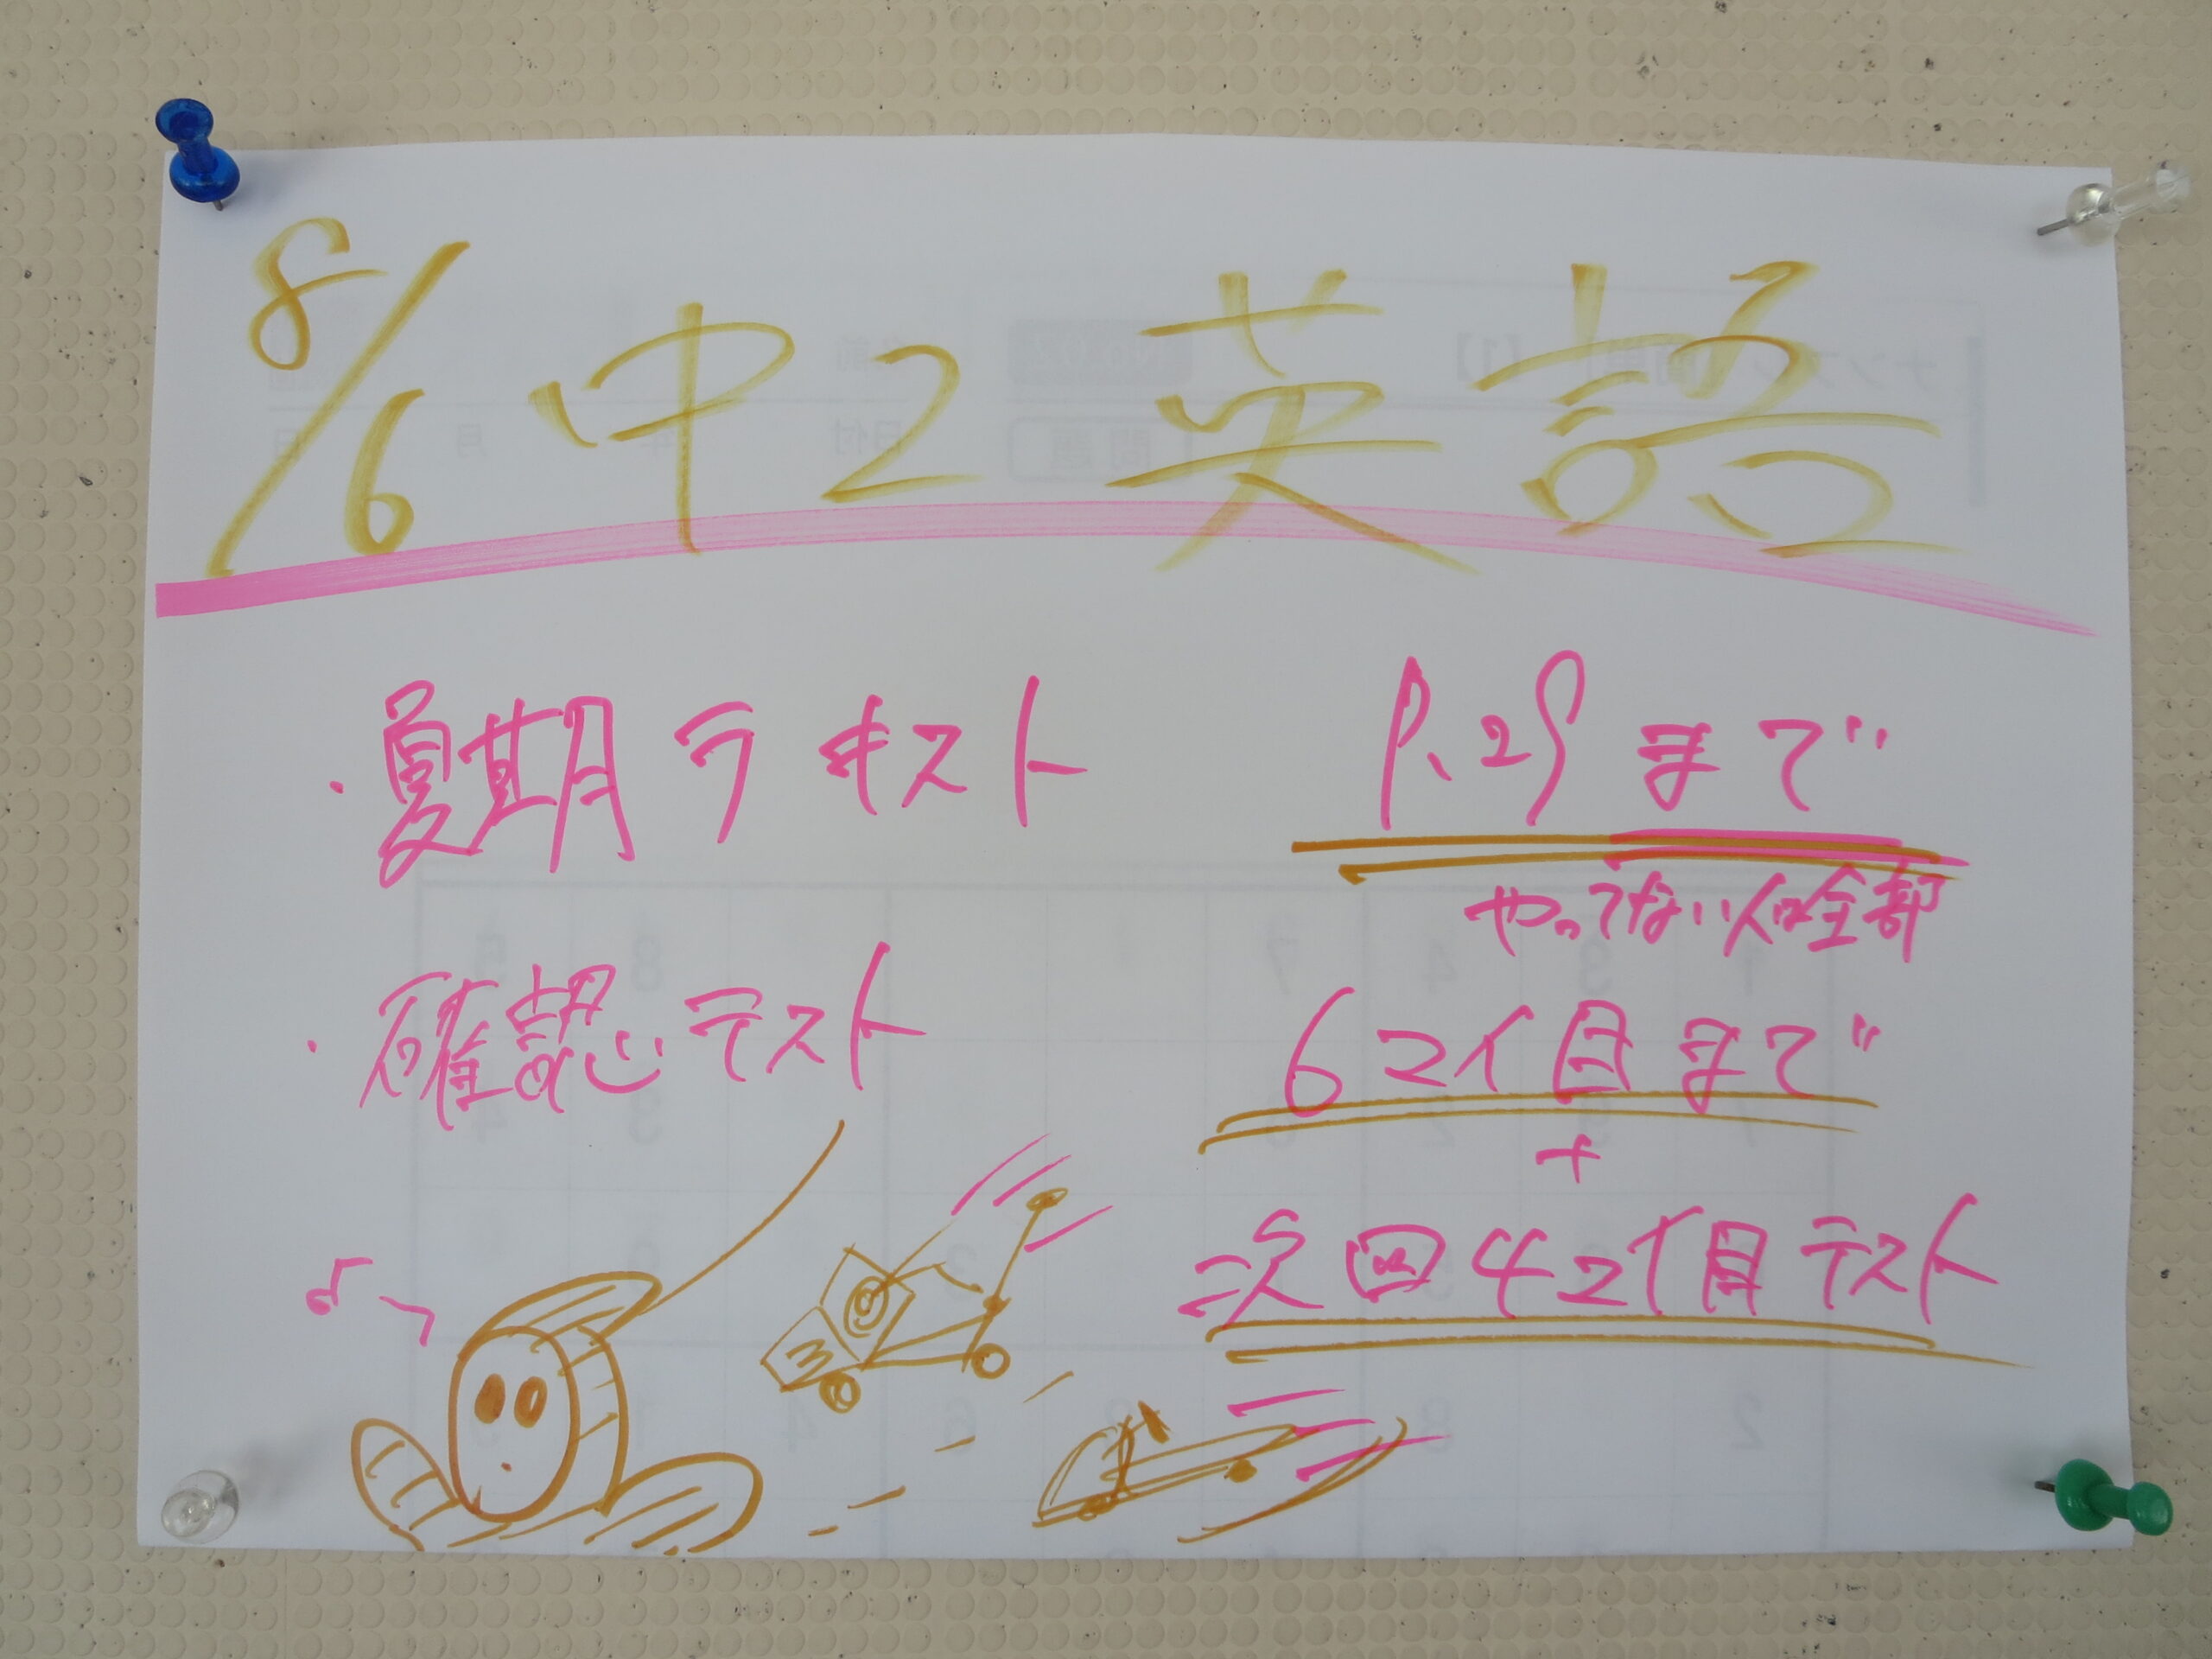 8/6 中2 英語
・夏期テキスト P.29まで
やってない人は全部
・確認テスト 6マイ目まで
+
次回4マイ目テスト
3